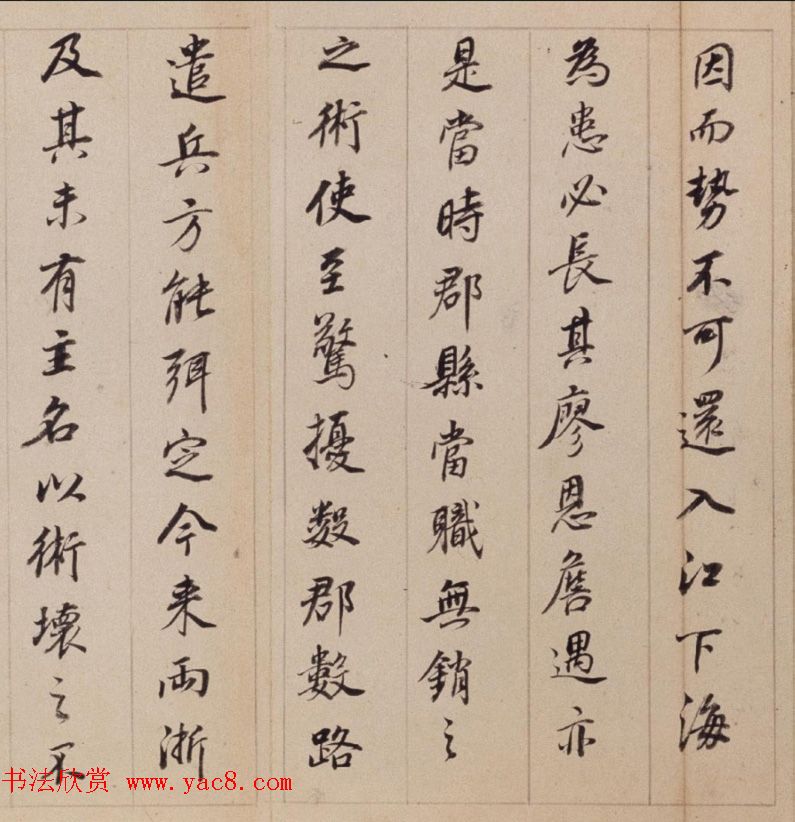 因而勢不可還入江下海
為患必長其廖恩詹遇亦
是當時郡縣當職無銷之
之術使至驚擾數郡數路
遣兵方能弭定今来兩浙
及其未有主名以術壞之不
书法欣赏 www.yac8.com